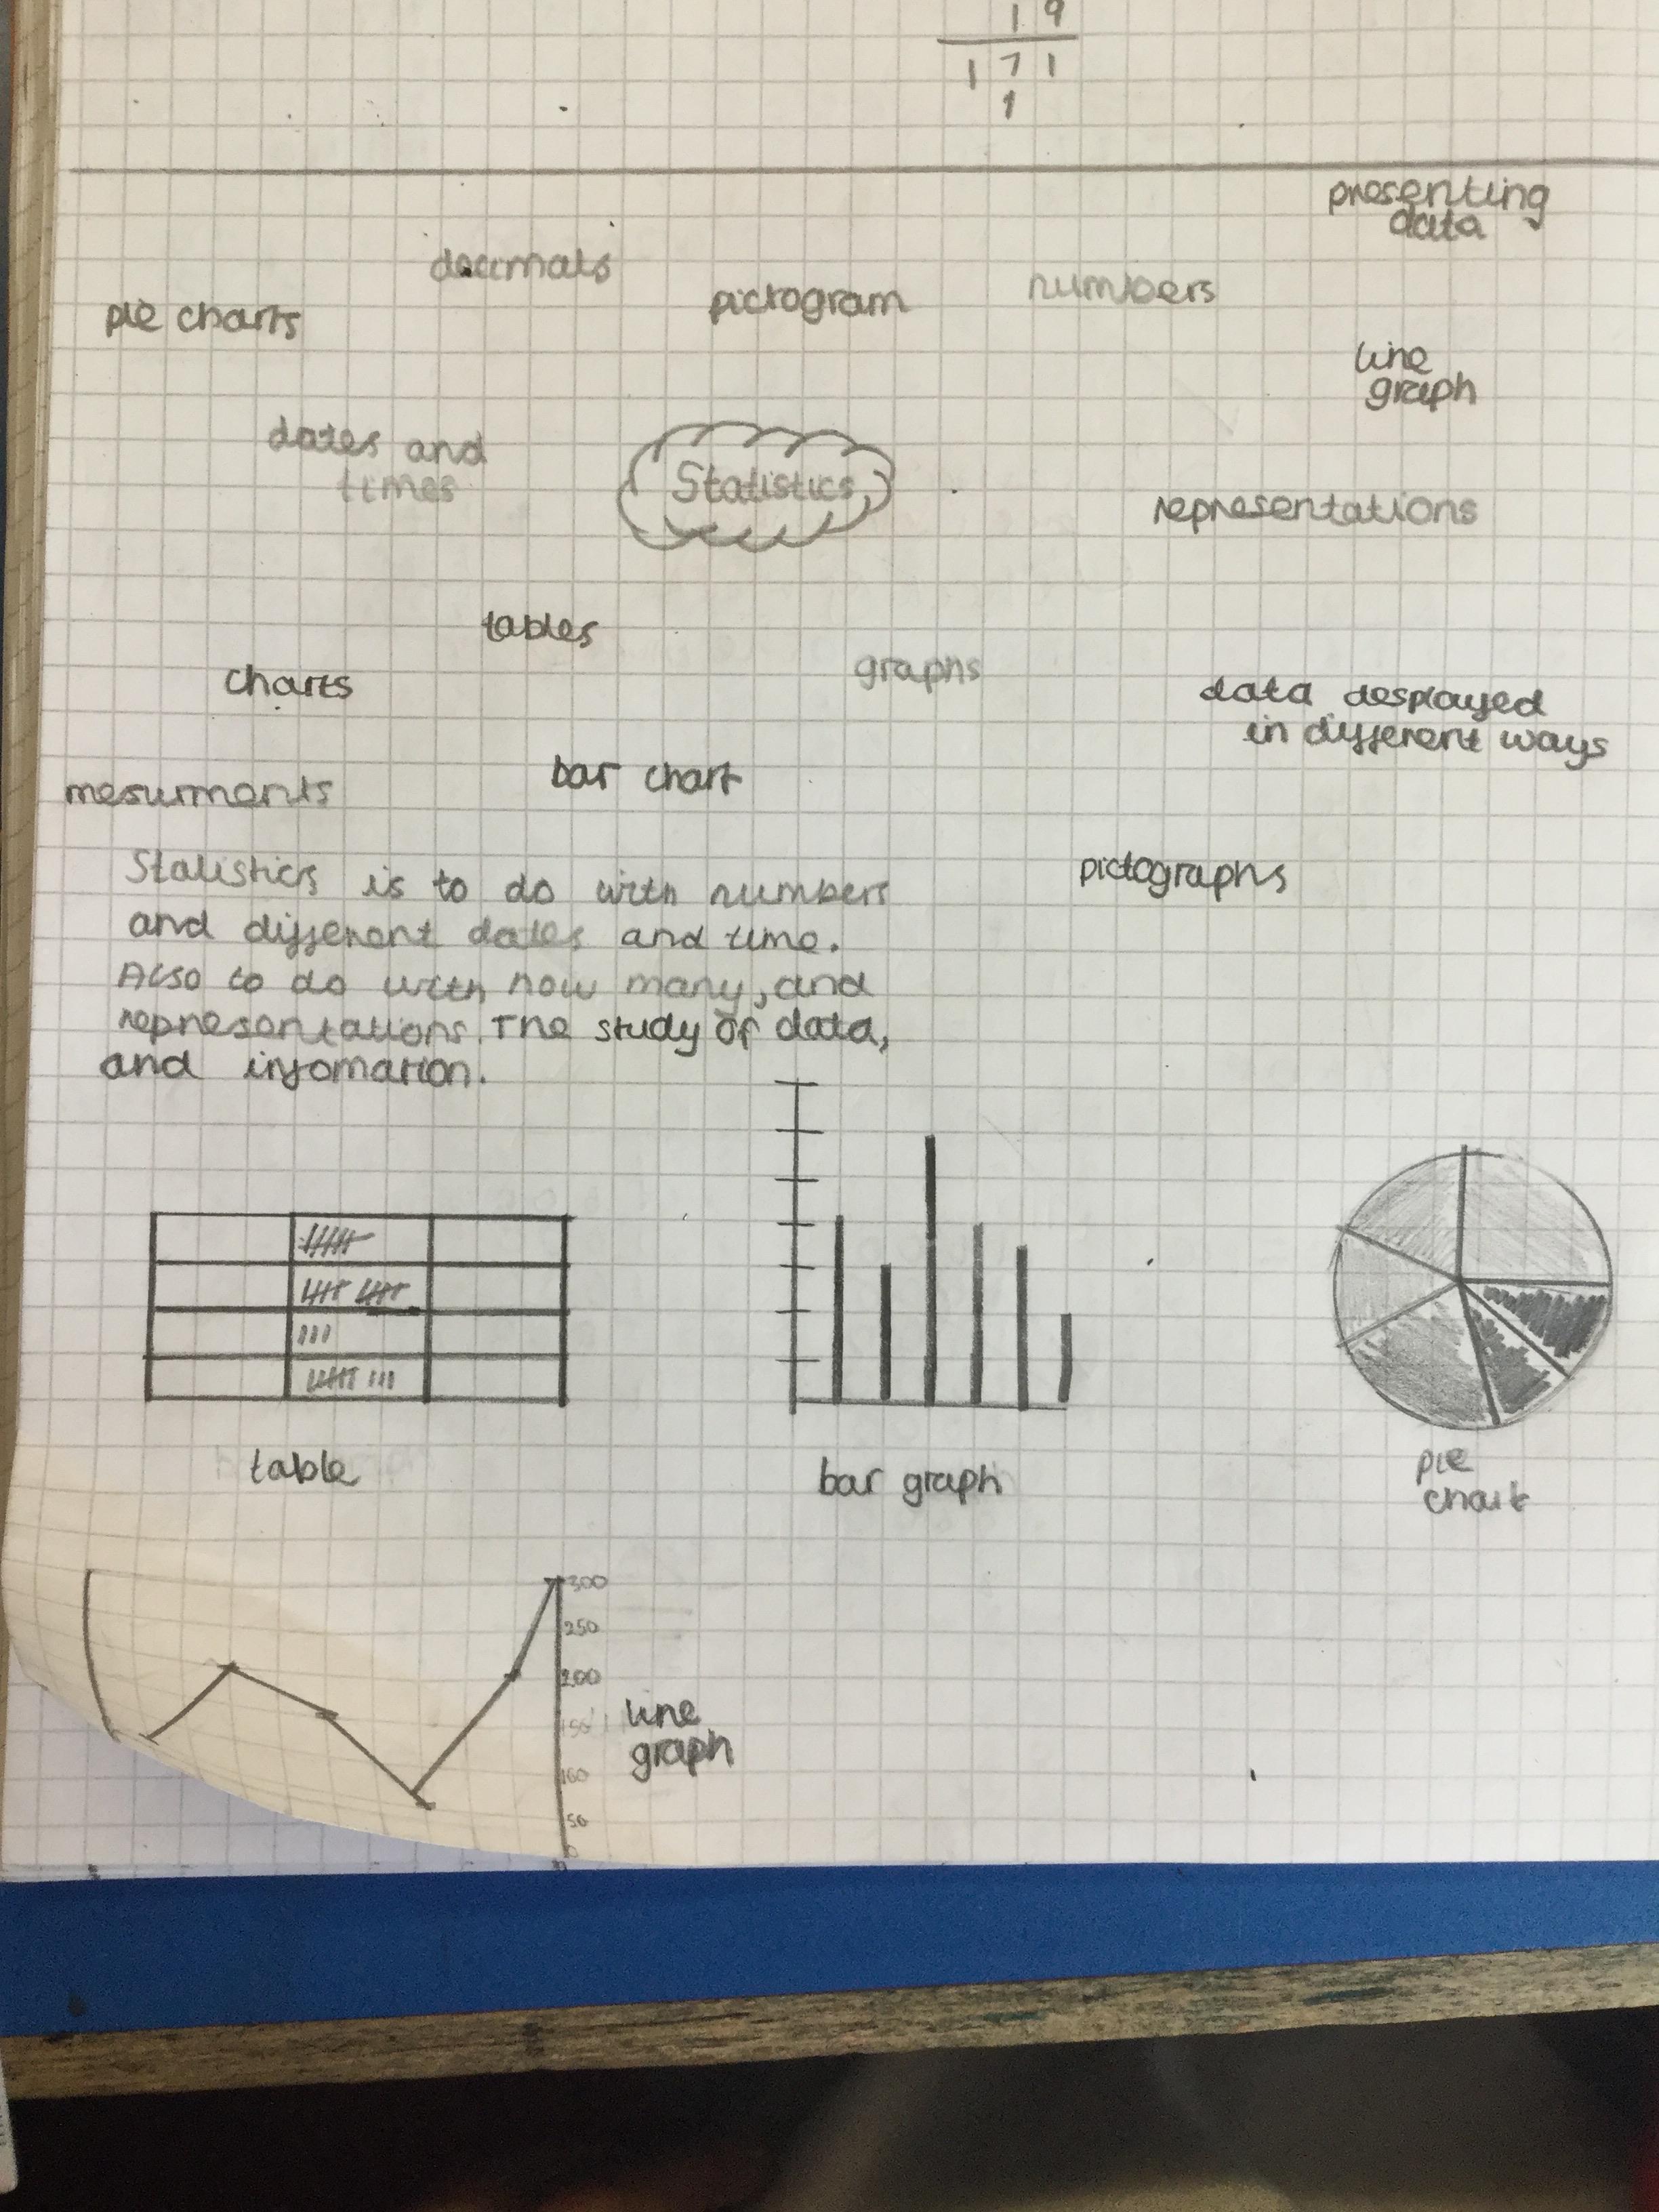 1 9
1 7 1
1
presenting
data
decimals
pictogram
numbers
pie charts
line
graph
dates and
times
Statistics
representations
tables
charts
graphs
data desplayed
in different ways
bar chart
mesurments
pictographs
Statistics is to do with numbers
and different dates and time.
Also to do with how many, and
representations. The study of data,
and infomation.
table
bar graph
pie
chart
300
250
200
150
100
50
0
line
graph